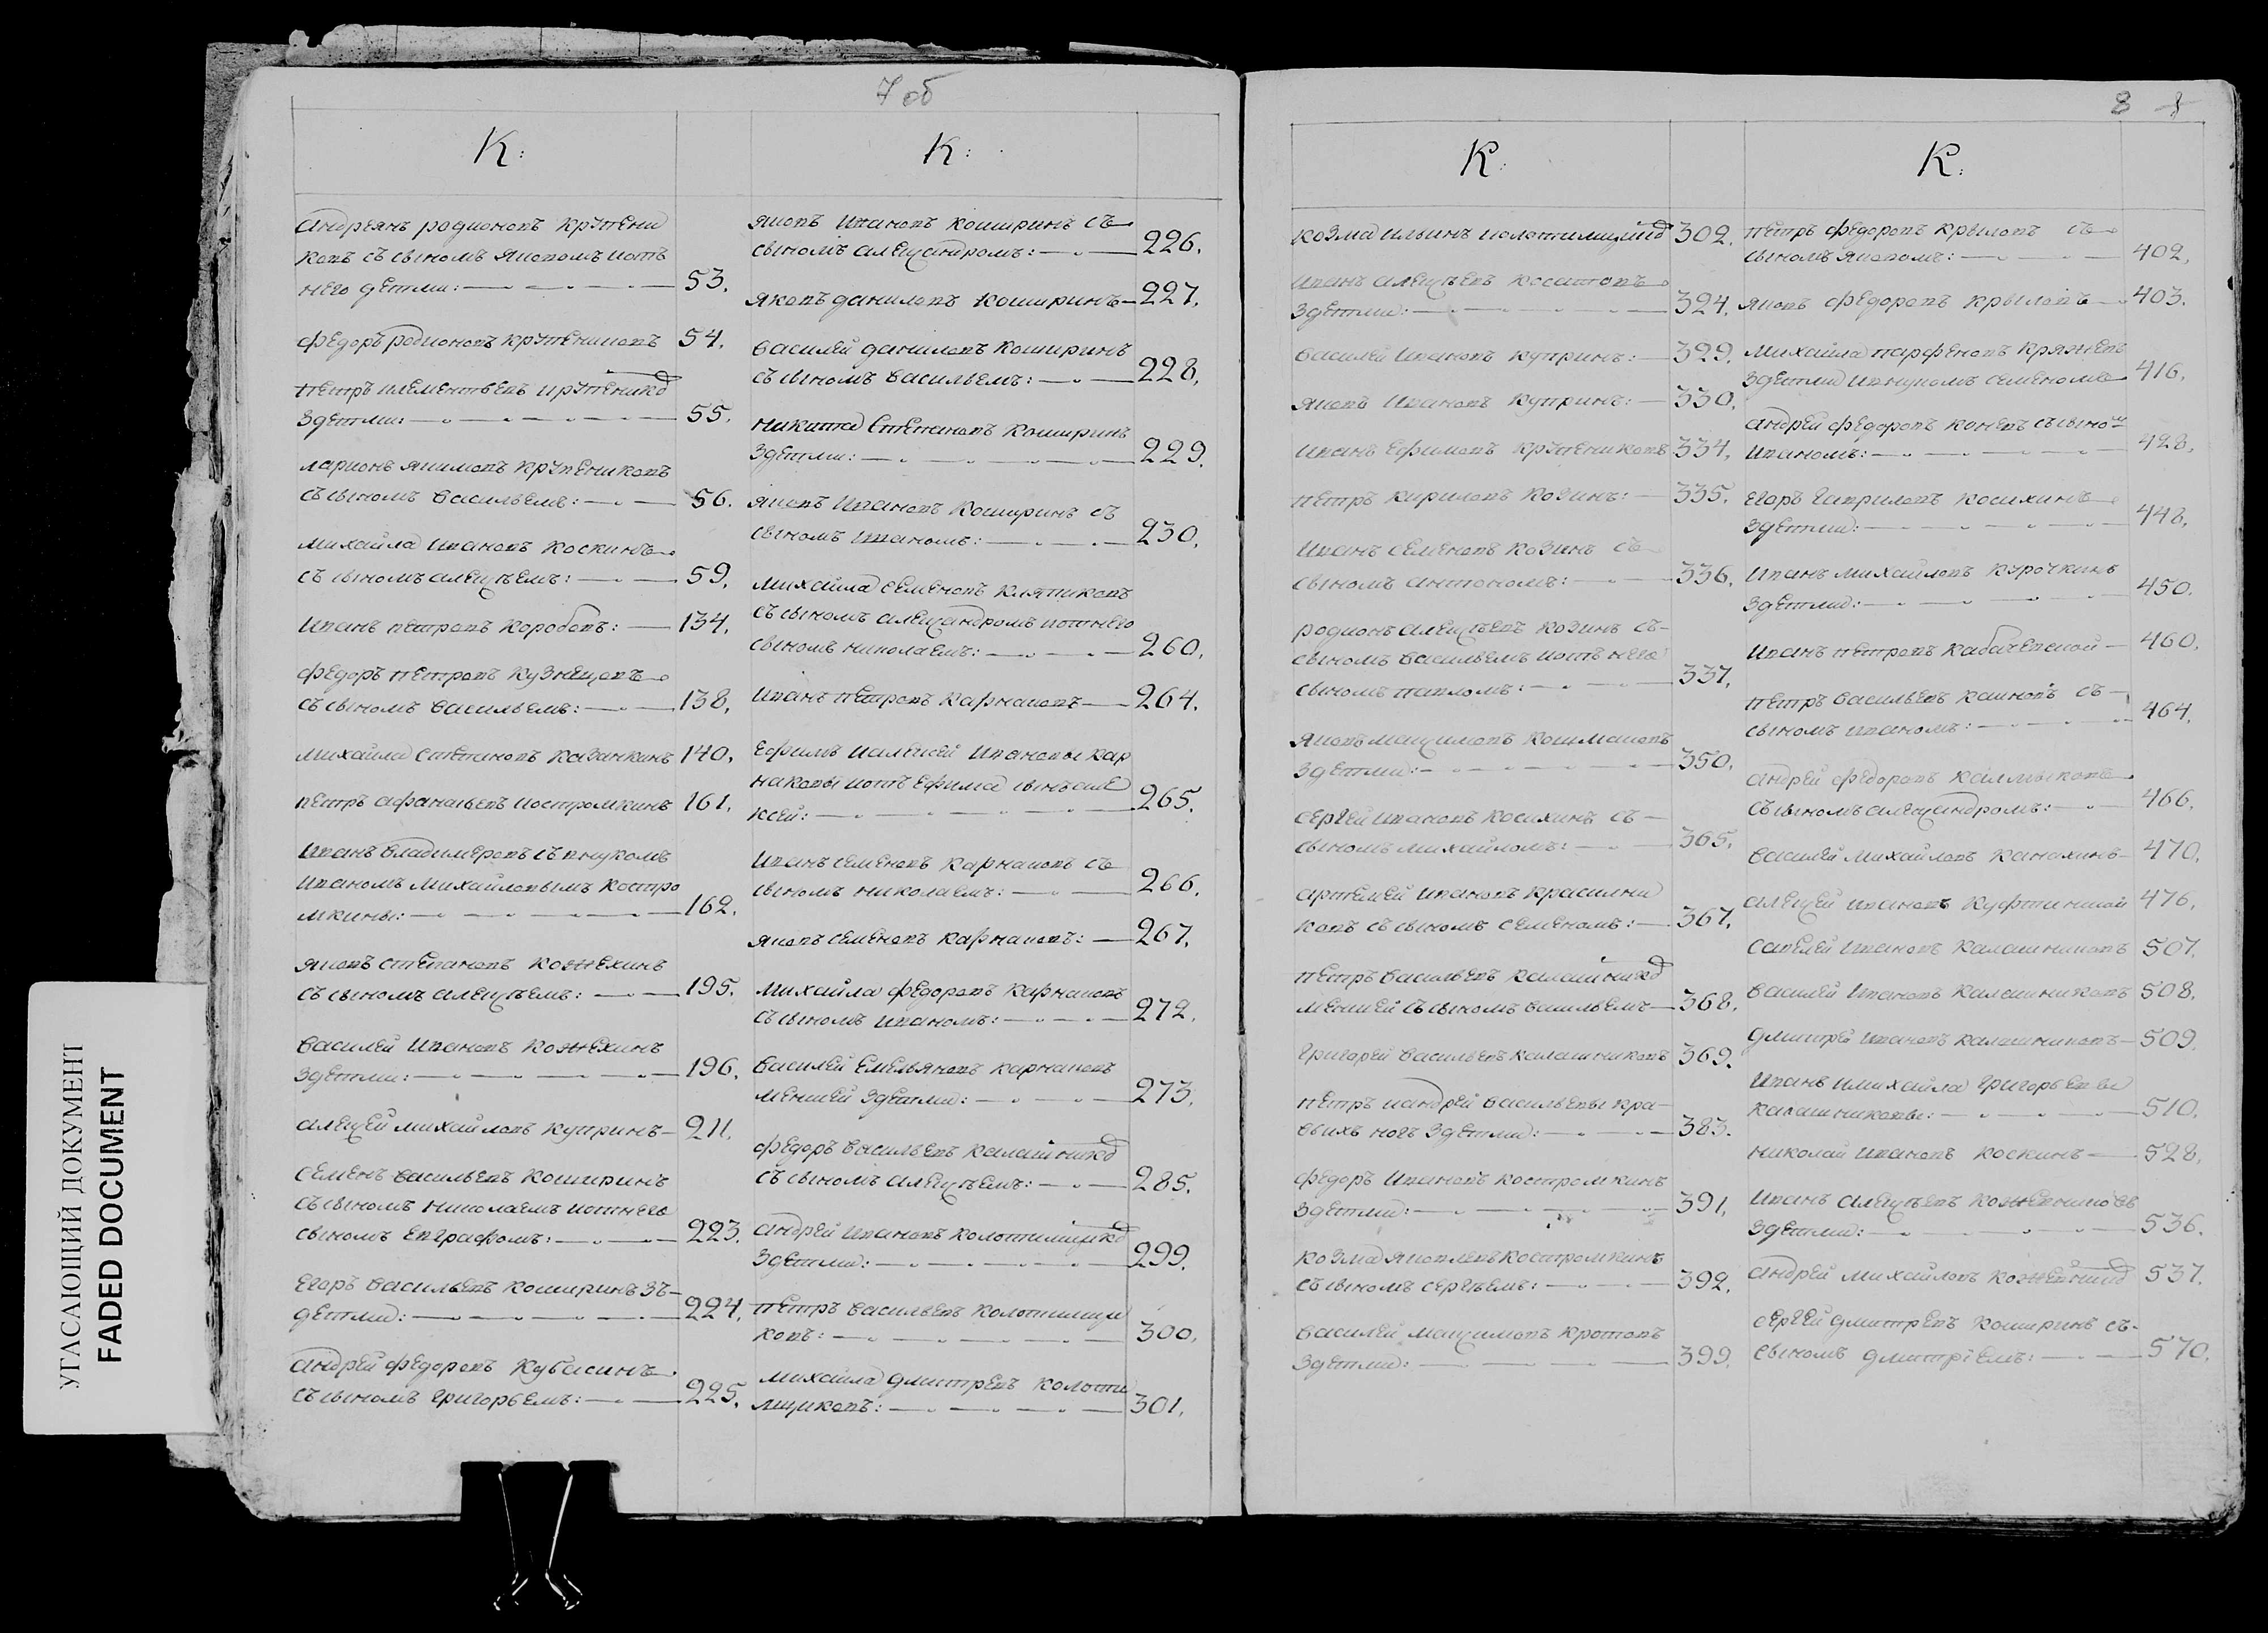 7 об
К:
Андреянъ родионовъ крупени
ковъ съ сыномъ яковомъ иотъ
него детми: 53.
Федоръ родионовъ крупениковъ 54.
Петръ клементьевъ крупениковъ
здетми: 55.
ларионъ якимовъ крупениковъ
съ сыномъ васильемъ: 56.
михайла ивановъ коскинъ
съ сыномъ алексѣемъ: 59.
Иванъ петровъ коробовъ: 134.
Федоръ петровъ кузнецовъ
съ сыномъ васильемъ: 138.
михайла степановъ казанкинъ 140.
петръ афанасьевъ костромкинъ 161.
Иванъ владимеровъ съ внукомъ
Иваномъ михайловымъ костро
мкины: 162.
яковъ степановъ кожехинъ
съ сыномъ алексѣемъ: 195.
василей ивановъ кожехинъ
здетми: 196.
алексей михайловъ купринъ 211.
семенъ васильевъ коширинъ
съ сыномъ николаемъ иотнего
сыномъ евграфомъ: 223.
Егоръ васильевъ коширинъ зъ
детми: 224.
Андрей федоровъ кубасинъ
съ сыномъ григорьемъ: 225.
К:
яковъ ивановъ коширинъ съ
сыномъ александромъ: 226.
яковъ даниловъ коширинъ 227.
василей даниловъ коширинъ
съ сыномъ васильемъ: 228.
никита степановъ коширинъ
здетми: 229.
яковъ ивановъ коширинъ съ
сыномъ иваномъ: 230.
михайла семеновъ клятиковъ
съ сыномъ александромъ иотнего
сыномъ николаемъ: 260.
Иванъ петровъ карнаковъ 264.
Ефимъ иалексей ивановы кар
наковы иотъ ефима сынъ але
ксей: 265.
Иванъ семеновъ карнаковъ съ
сыномъ николаемъ: 266.
яковъ семеновъ карнаковъ: 267.
михайла федоровъ карнаковъ
съ сыномъ иваномъ: 272.
василей емельяновъ карнаковъ
меншей здетми: 273.
Федоръ васильевъ калашниковъ
съ сыномъ алексѣемъ: 285.
Андрей ивановъ колотилщиковъ
здетми: 299.
Петръ васильевъ колотилщи
ковъ: 300.
михайла дмитревъ колоти
лщиковъ: 301.
8
К:
козма ильинъ колотилщиковъ 302.
Иванъ алексѣевъ косатовъ
здетми: 324.
василей ивановъ купринъ: 329.
яковъ ивановъ купринъ: 330.
Иванъ ефимовъ крупениковъ 334.
петръ кириловъ козинъ: 335.
Иванъ семеновъ козинъ съ
сыномъ антономъ: 336.
родионъ алексѣевъ козинъ съ
сыномъ васильемъ иотъ него
сыномъ павломъ: 337.
яковъ максимовъ кошмаковъ
здетми: 350.
сергей ивановъ косихинъ съ
сыномъ михайломъ: 365.
артемей ивановъ красилни
ковъ съ сыномъ семеномъ: 367.
Петръ васильевъ калашниковъ
меншей съ сыномъ васильемъ 368.
григорей васильевъ калашниковъ 369.
петръ иандрей васильевы кра
выхъ ногъ здетми: 383.
Федоръ ивановъ костромкинъ
здетми: 391.
козма яковлевъ костромкинъ
съ сыномъ сергѣемъ: 392.
василей максимовъ кротовъ
здетми: 399.
К:
Петръ федоровъ крыловъ съ
сыномъ яковомъ: 402.
яковъ федоровъ крыловъ 403.
михайла парфеновъ кряжевъ
здетми ивнукомъ семеномъ 416.
Андрей федоровъ коневъ съ сыномъ
Иваномъ: 428.
Егоръ гавриловъ косихинъ
здетми: 448.
Иванъ михайловъ курочкинъ
здетми: 450.
Иванъ петровъ кабачевской 460.
Петръ васильевъ каиновъ съ
сыномъ иваномъ: 464.
Андрей федоровъ калмыковъ
съ сыномъ александромъ: 466.
василей михайловъ канахинъ 470.
алексей ивановъ куфтинской 476.
савелей ивановъ калашниковъ 507.
василей ивановъ калашниковъ 508.
дмитрей ивановъ калашниковъ 509.
Иванъ имихайла григорьевы
калашниковы: 510.
николай ивановъ коскинъ 528.
Иванъ алексѣевъ кожевниковъ
здетми: 536.
Андрей михайловъ кожевниковъ 537.
сергей дмитревъ коширинъ съ
сыномъ дмитріемъ: 570.
УГАСАЮЩИЙ ДОКУМЕНТ
FADED DOCUMENT